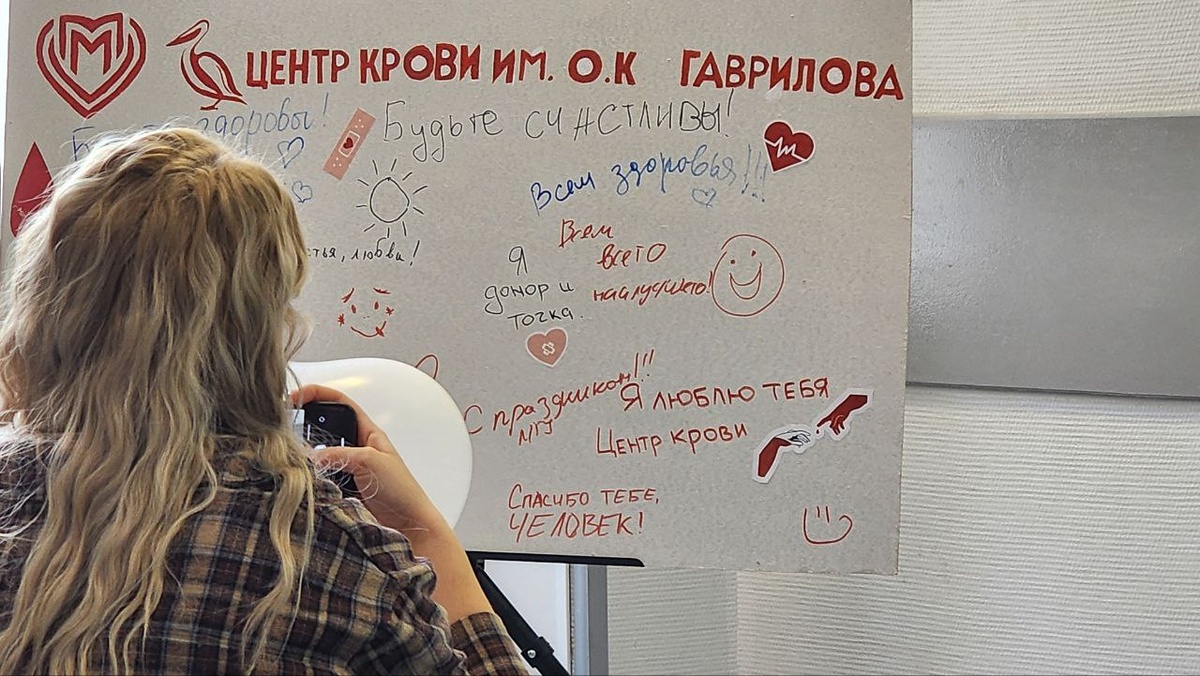 М
ЦЕНТР КРОВИ ИМ. О.К ГАВРИЛОВА
здоровы!
Будьте счастливы!
Всем здоровья!!!
Всем
всего
наилучшего!
Я
донор и
точка.
любви!
С праздником!!!
Я ЛЮБЛЮ ТЕБЯ
ЦЕНТР КРОВИ
СПАСИБО ТЕБЕ,
ЧЕЛОВЕК!